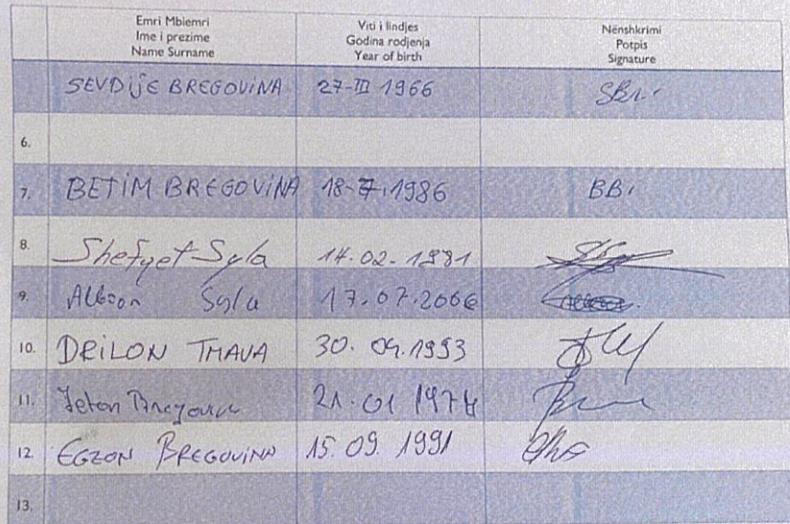 Emri Mbiemri
Ime i prezime
Name Surname
Viti i lindjes
Godina rodjenja
Year of birth
Nënshkrimi
Potpis
Signature
SEVDIJE BREGOVINA 27-III 1966
6.
7. BETIM BREGOVINA 18-7.1986 BB.
8. Shefqet Syla 14.02-1981
9. Syla 17.07.2006
10. DRILON THAVA 30.04.1993
11. Jeton 21.01 1974
12 EGZON BREGOVINA 15.09.1991
13.